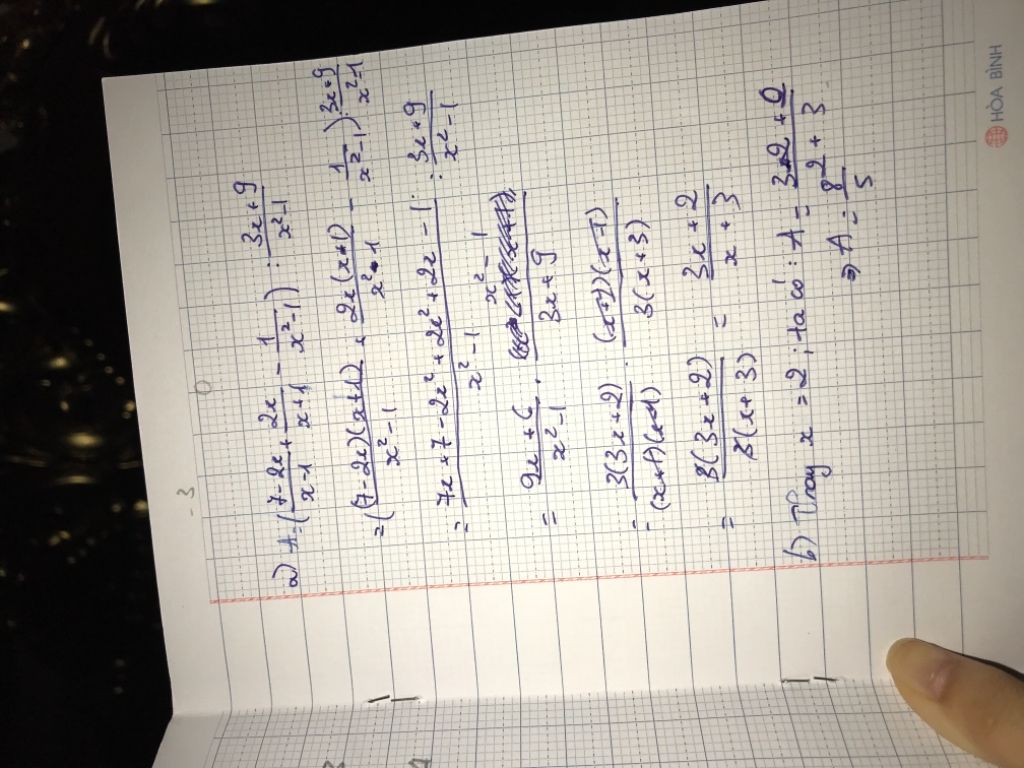 - 3
a) A = ( 7-2x/x-1 + 2x/x+1 - 1/x²-1 ) : 3x+9/x²-1
= ( (7-2x)(x+1)/x²-1 + 2x(x+1)/x²-1 - 1/x²-1 ) : 3x+9/x²-1
= 7x+7-2x²+2x²+2x-1/x²-1 : 3x+9/x²-1
= 9x+6/x²-1 . x²-1/3x+9
= 3(3x+2)/(x+1)(x-1) . (x+1)(x-1)/3(x+3)
= 3(3x+2)/3(x+3) = 3x+2/x+3
b) Thay x = 2 ; ta có : A = 3.2+2/2+3
⇒ A = 8/5
HÒA BÌNH